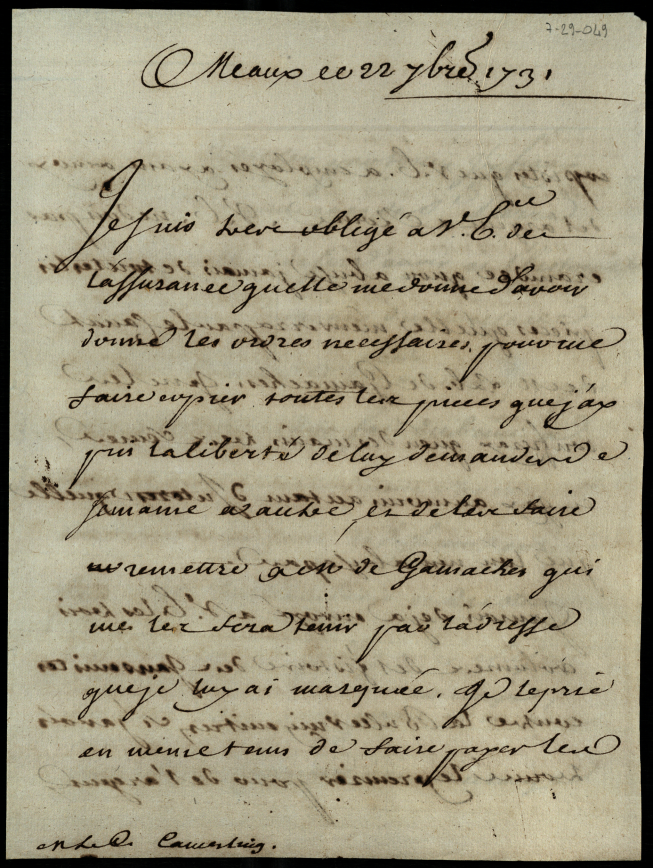 7-29-049
Meaux ce 22 7bre 1731
Je suis tres obligé a V. E.ce de
l'assurance quelle me donne d'avoir
donné les ordres necessaires, pour me
faire copier toutes les pieces que j'ay
pris la liberté de luy demander de
semaine a autre, et de les faire
remettre a M de Gamaches qui
me les fera tenir par l'adresse
que je luy ai marquée. Je le prie
en meme tems de faire payer les